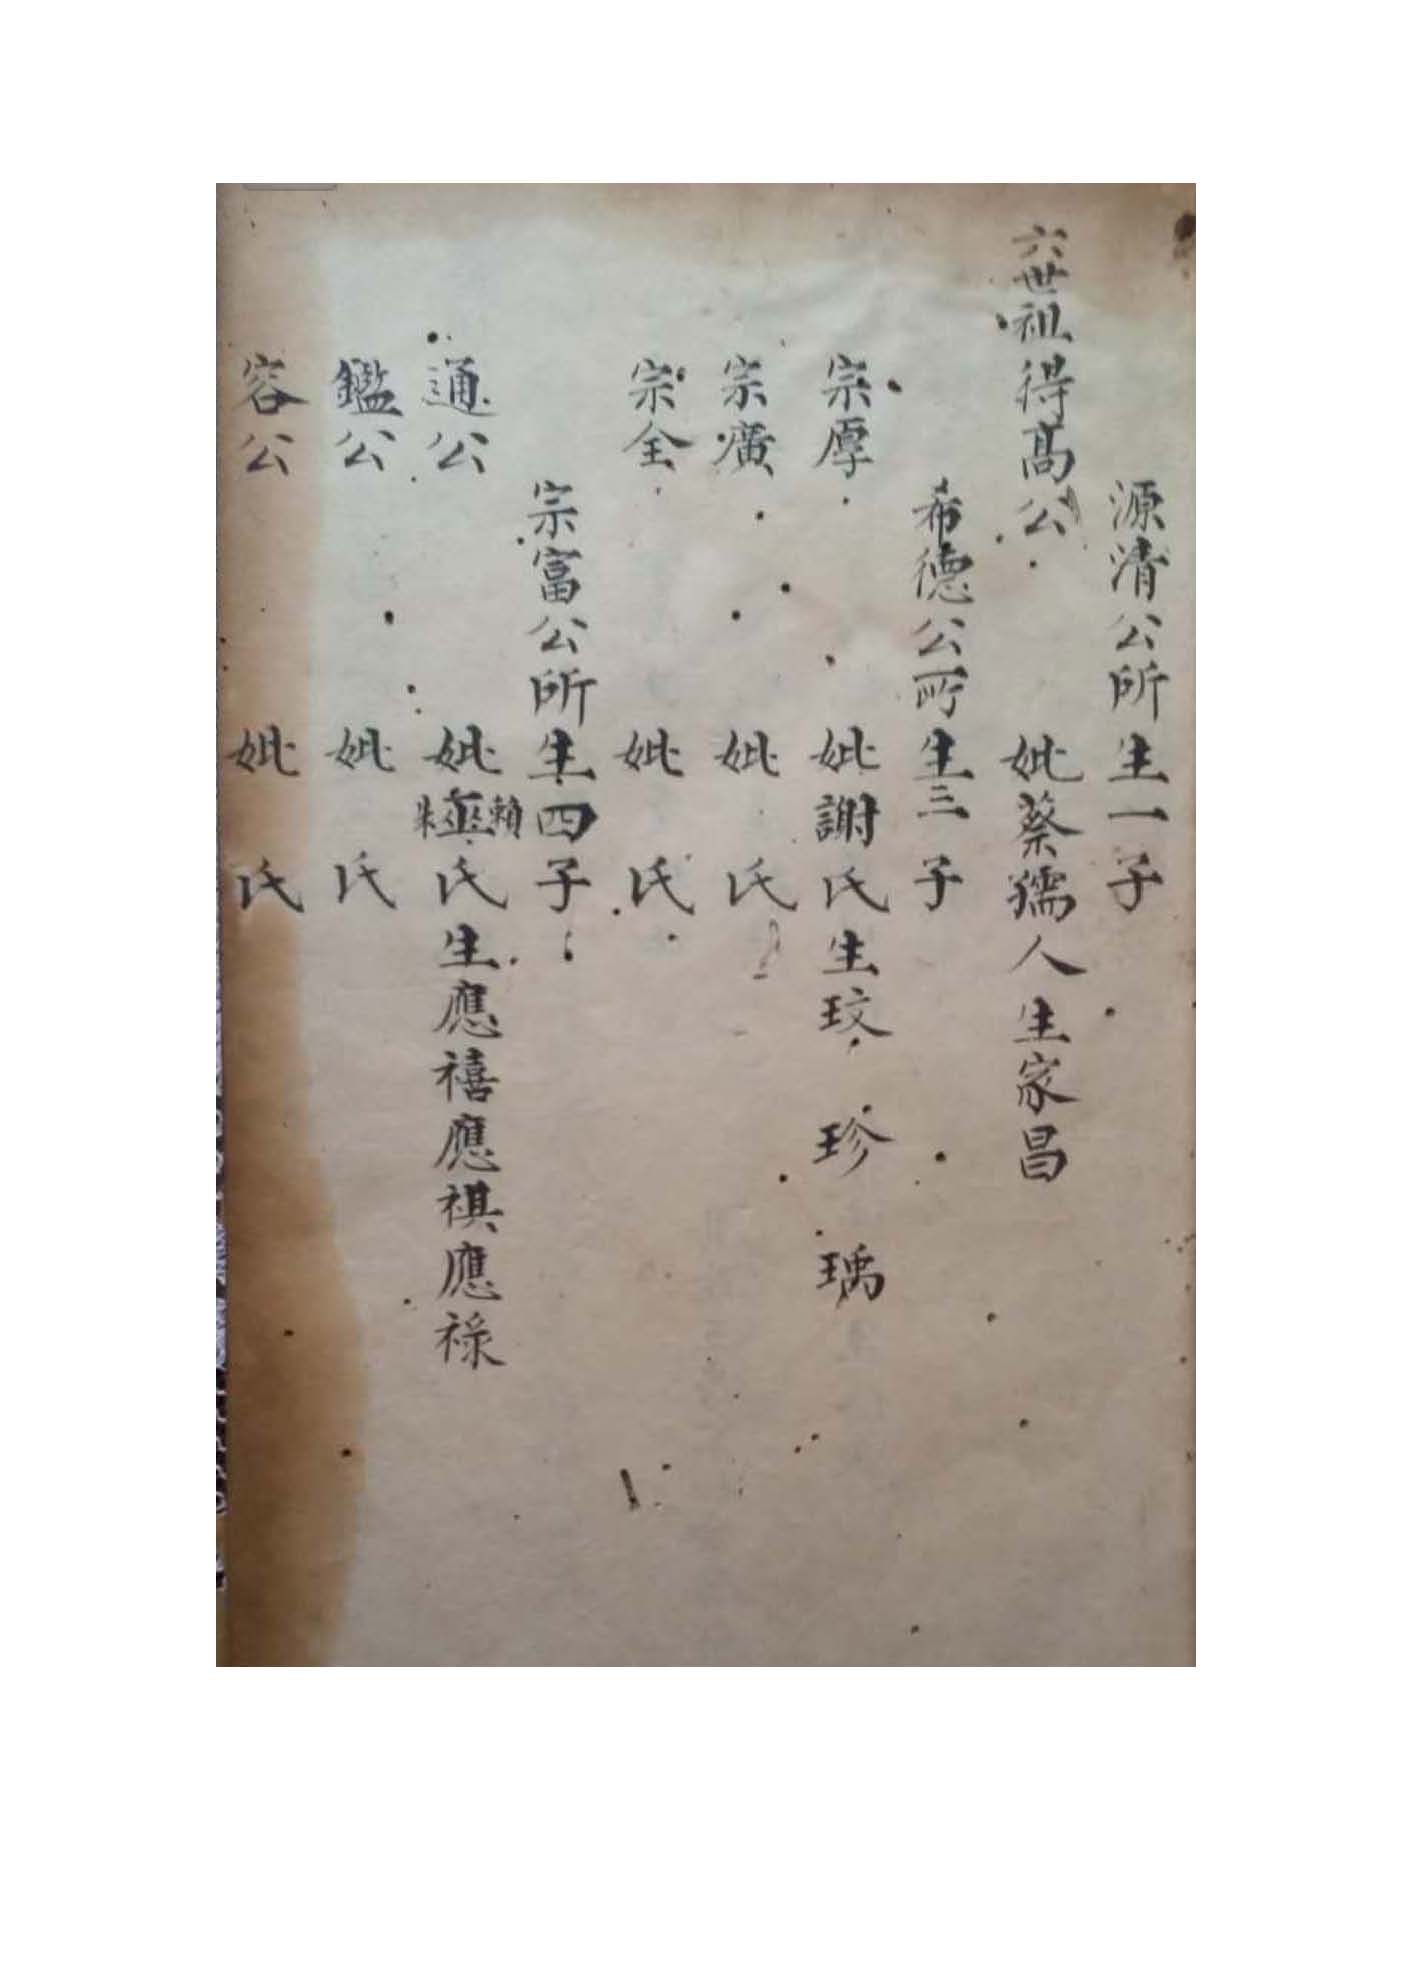 源清公所生一子
六世祖得高公 妣蔡孺人生家昌
希德公所生三子
宗厚 妣謝氏生玟 珍 瑀
宗廣 妣 氏
宗全 妣 氏
宗富公所生四子
通公 妣賴 朱氏生應禧應祺應祿
鑑公 妣 氏
容公 妣 氏